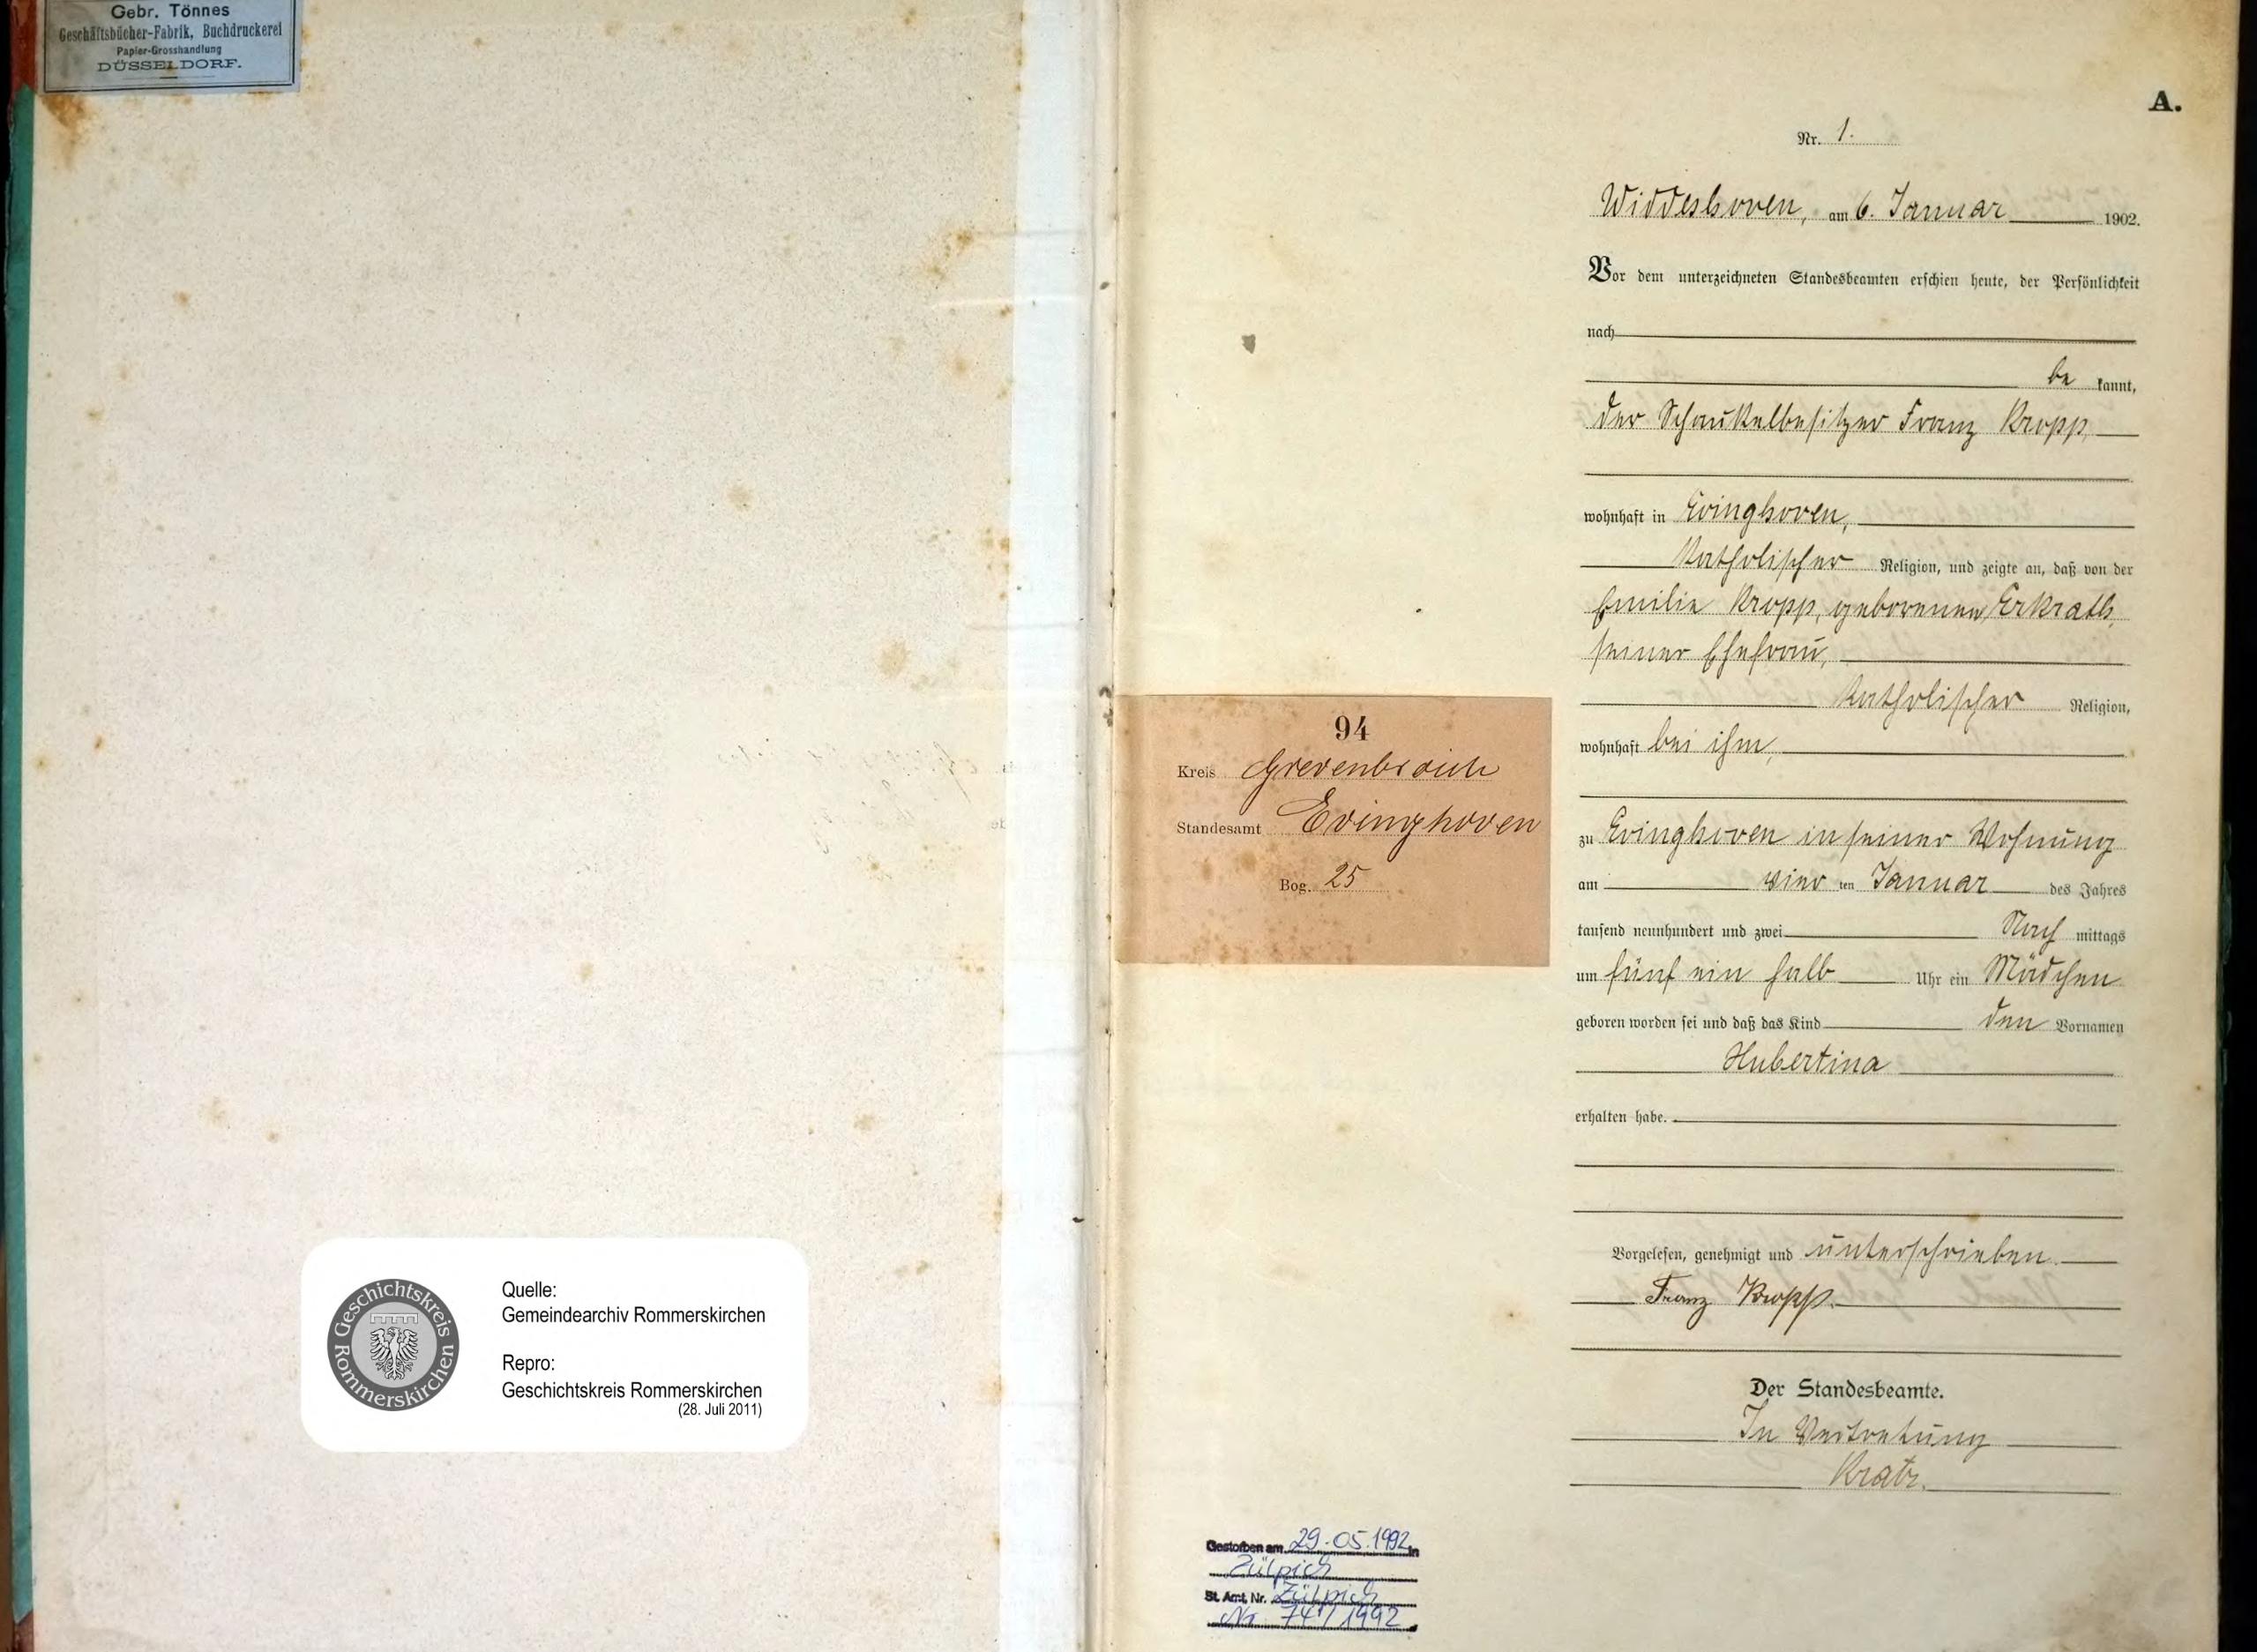 Gebr. Tönnes
Geschäftsbücher-Fabrik, Buchdruckerei
Papier-Grosshandlung
DÜSSELDORF.
Geschichtskreis Rommerskirchen
Quelle:
Gemeindearchiv Rommerskirchen
Repro:
Geschichtskreis Rommerskirchen
(28. Juli 2011)
94
Kreis Grevenbroich
Standesamt Evinghoven
Bog. 25
A.
Nr. 1.
Widdeshoven, am 6. Januar 1902.
Vor dem unterzeichneten Standesbeamten erschien heute, der Persönlichkeit
nach
be kannt,
der Schaukelbesitzer Franz Kropp
wohnhaft in Evinghoven,
katholischer Religion, und zeigte an, daß von der
Emilie Kropp, geborenen Erkrath,
seiner Ehefrau,
katholischer Religion,
wohnhaft bei ihm,
zu Evinghoven in seiner Wohnung
am vier ten Januar des Jahres
tausend neunhundert und zwei Nach mittags
um fünf ein halb Uhr ein Mädchen
geboren worden sei und daß das Kind den Vornamen
Hubertina
erhalten habe.
Vorgelesen, genehmigt und unterschrieben.
Franz Kropp.
Der Standesbeamte.
In Vertretung
Kratz.
Gestorben am 29.05.1992 in
Zülpich
St. Amt, Nr. Zülpich
Nr. 74/1992